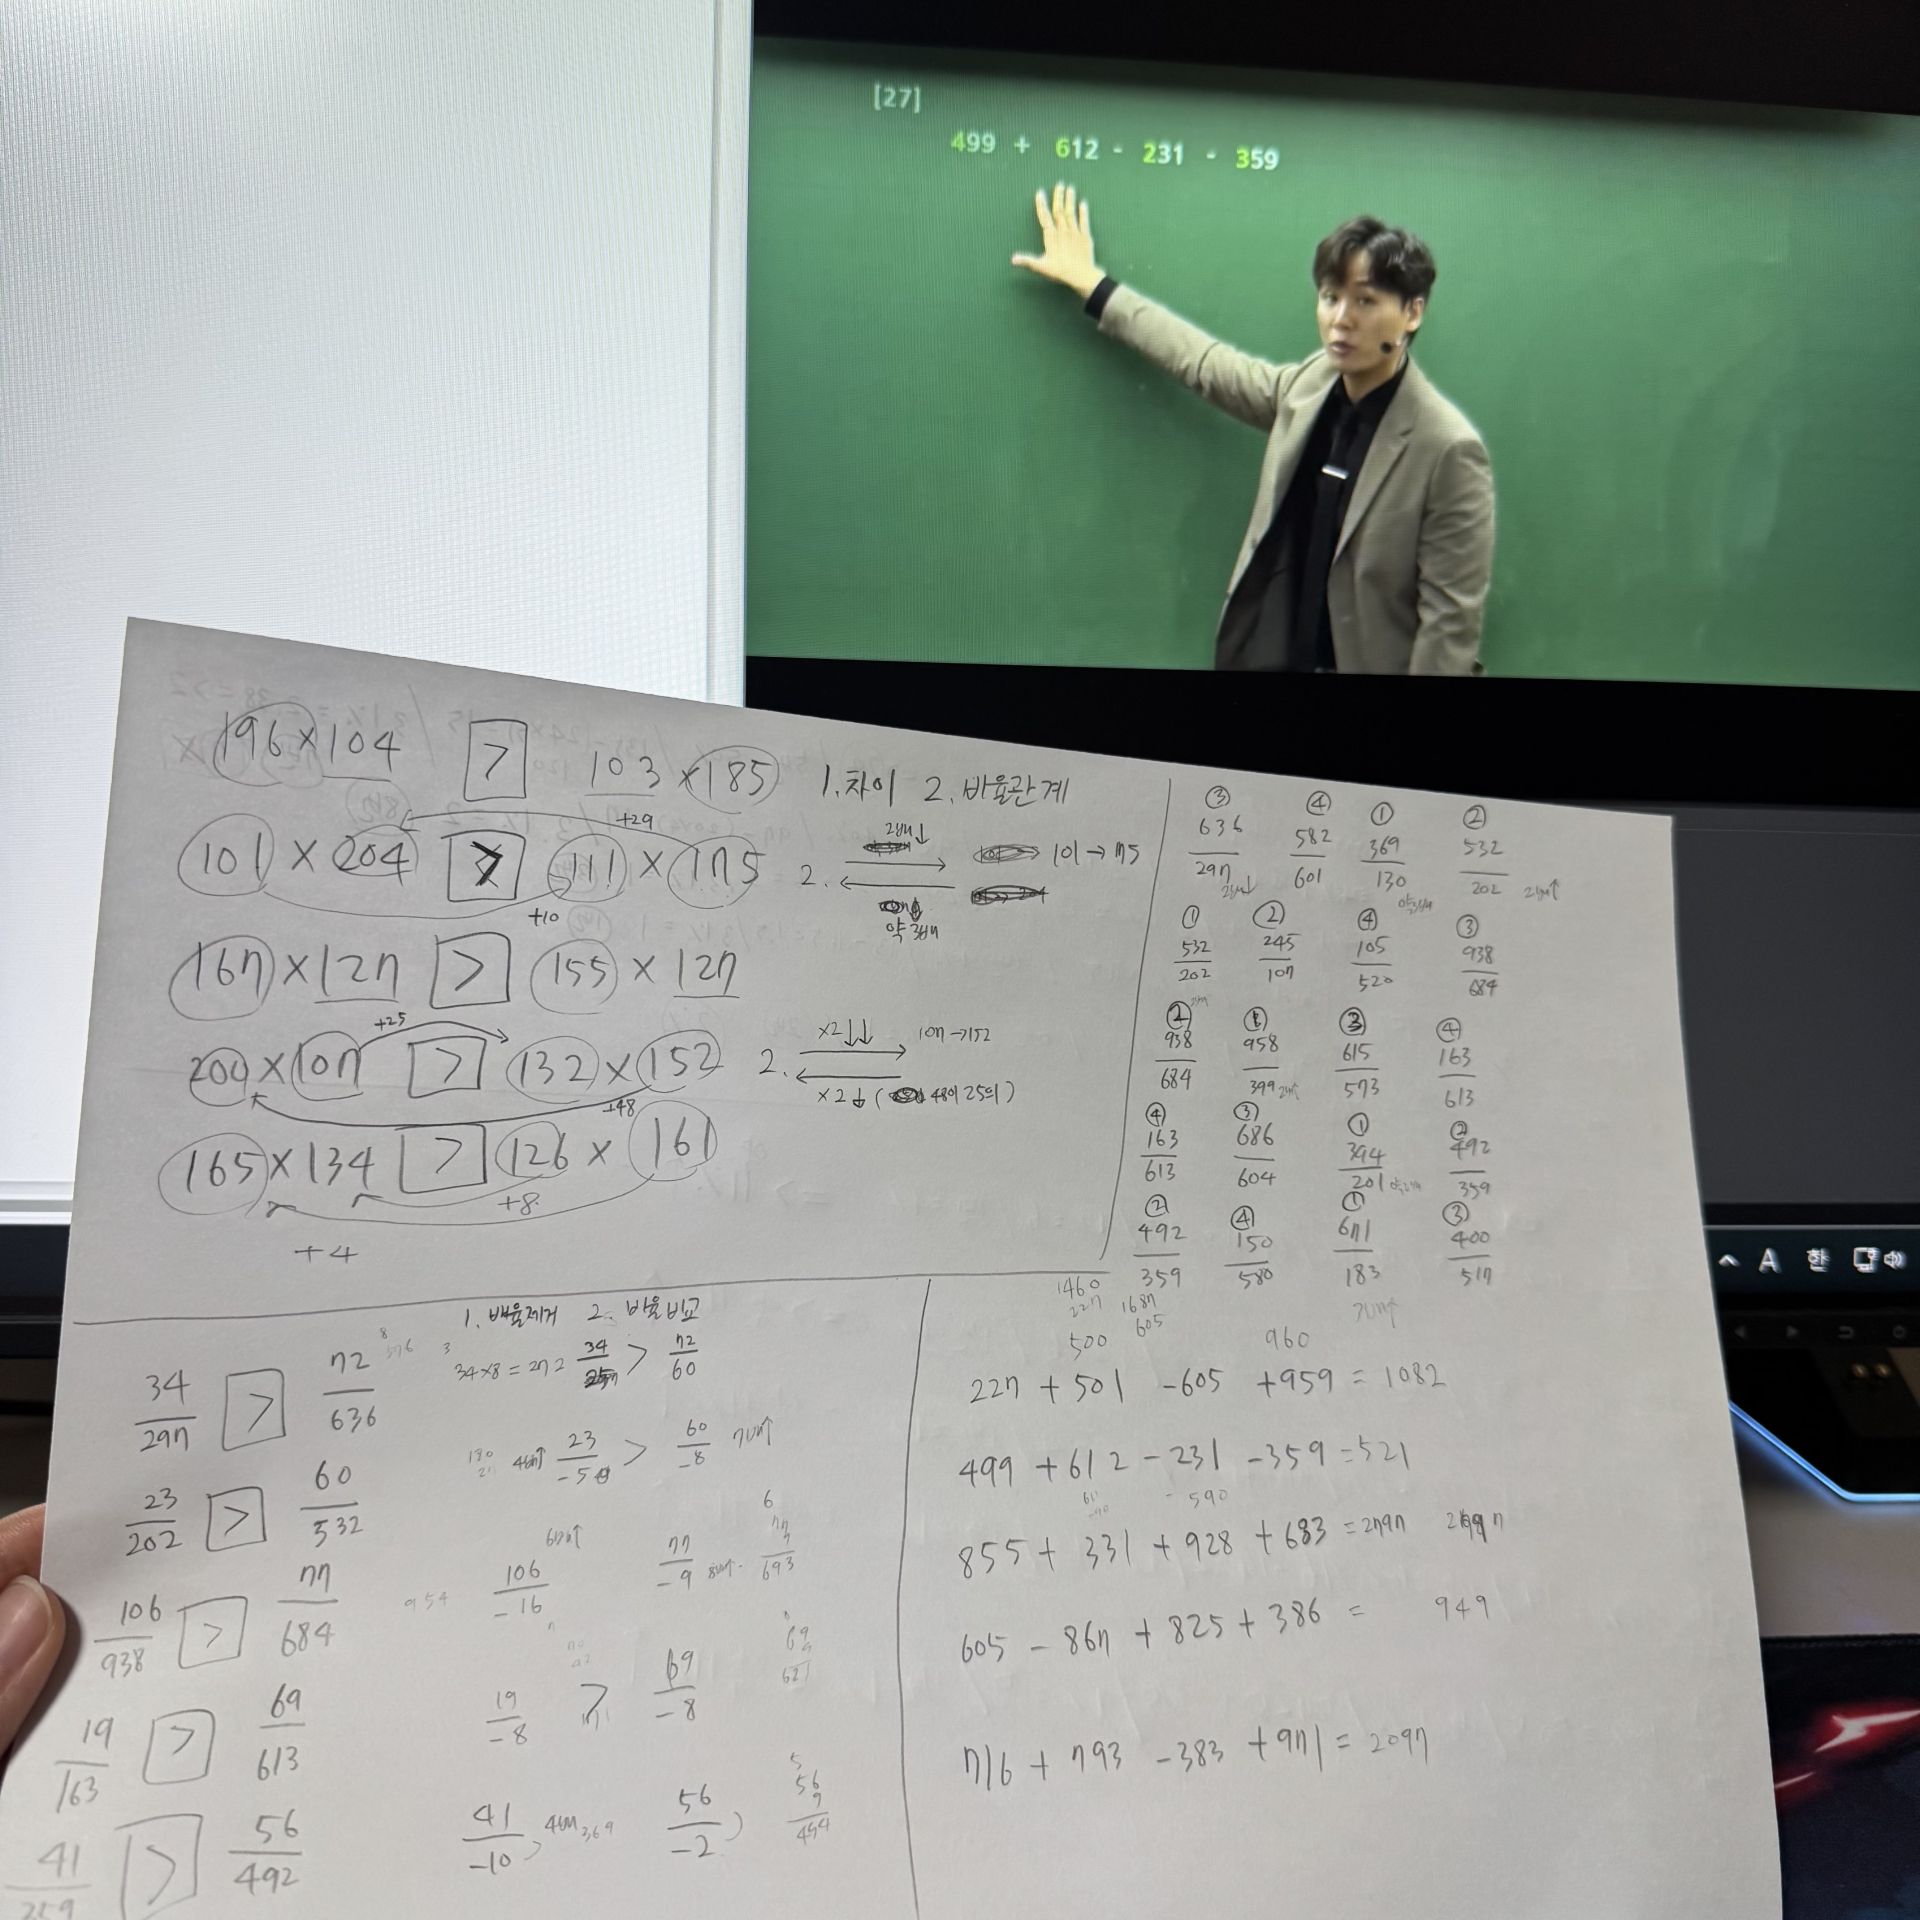 [27]
499 + 612 - 231 - 359
196×104 > 103×185
1.차이 2.비율관계
101×204 111×175
+29
+10
2. 2배↓ 101→175
약3배
167×127 > 155×127
200×107 > 132×152
+25
+48
2. ×2↓↓ 107→152
×2↓ ( 48이 25의 )
165×134 > 126×161
+8
+4
③ ④ ① ②
636/297 582/601 369/130 532/202
2배↓ 약3배 2배↑
① ② ④ ③
532/202 245/107 105/520 938/684
② ① ③ ④
938/684 958/399 615/573 163/613
2배↑
④ ③ ① ②
163/613 686/604 394/201 492/359
② ④ ① ③
492/359 150/580 671/183 400/517
1.배율제거 2.비율비교
34/297 > 72/636
34×8=272 34/25 > 72/60
23/202 > 60/532
4배↑ 23/-5 > 60/-8 7배↑
106/938 > 77/684
954 106/-16 77/-9 693
19/163 > 69/613
19/-8 > 69/-8 69 9 621
41/359 > 56/492
41/-10 369 56/-2 56 9
1460
227 1687
500 605 960
227 + 501 - 605 + 959 = 1082
499 + 612 - 231 - 359 = 521
- 590
855 + 331 + 928 + 683 = 2797
605 - 867 + 825 + 386 = 949
716 + 793 - 383 + 971 = 2097
A 한